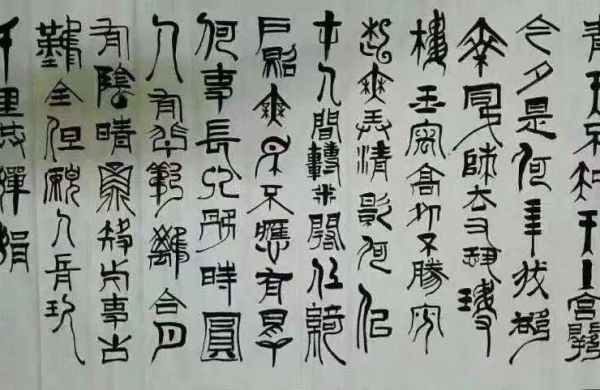 青天不知天上宮闕
今夕是何年我欲
乘風歸去又恐瓊
樓玉宇高處不勝寒
起舞弄清影何似
在人間轉朱閣低綺
戶照無眠不應有恨
何事長向別時圓
人有悲歡離合月
有陰晴圓缺此事古
難全但願人長久
千里共嬋娟